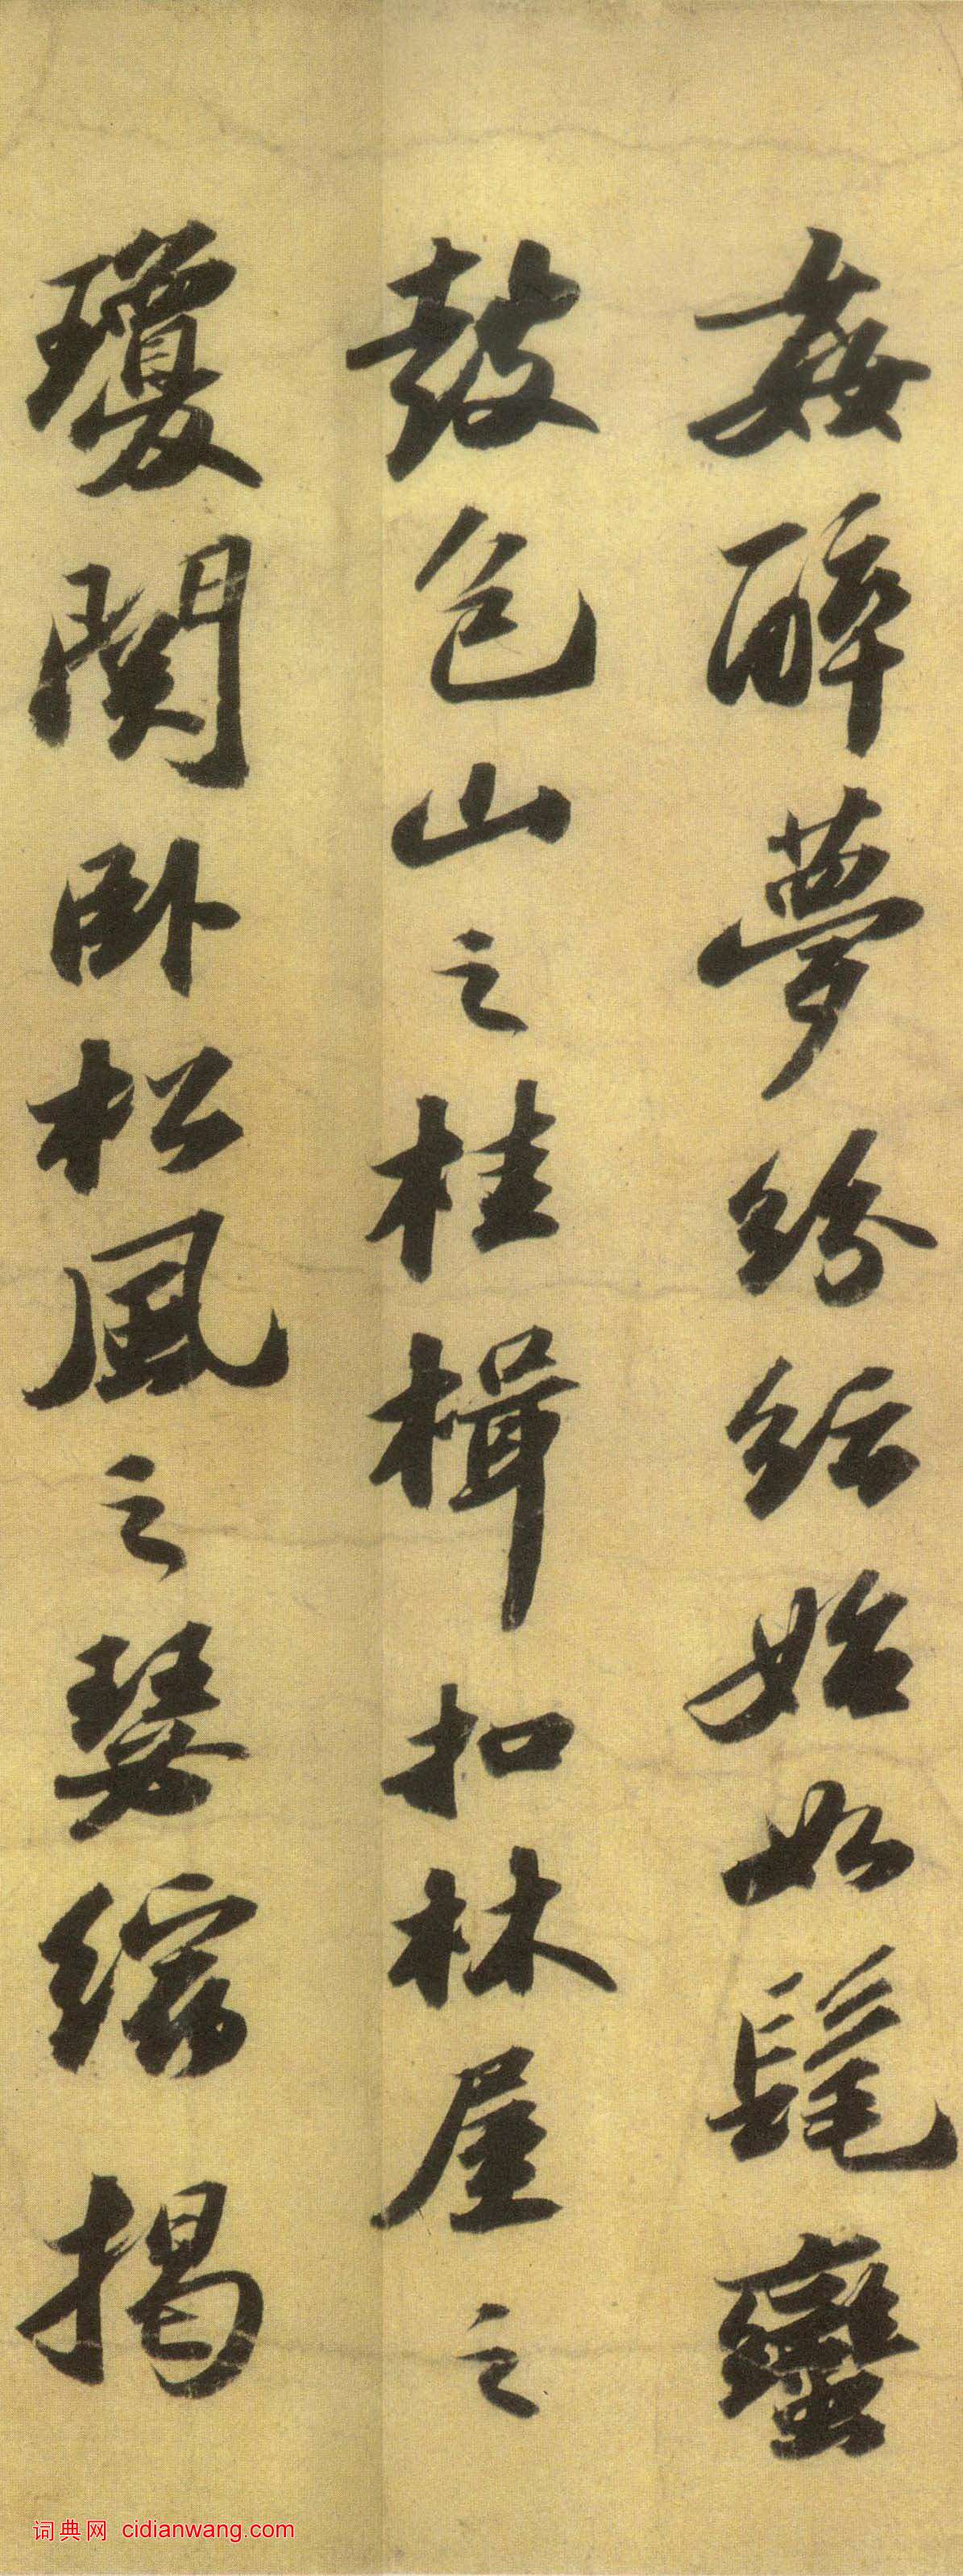 姦醉夢紛紜始如髦蠻
鼓包山之桂楫扣林屋之
瓊關卧松風之瑟縮揭
词典网 cidianwang.com